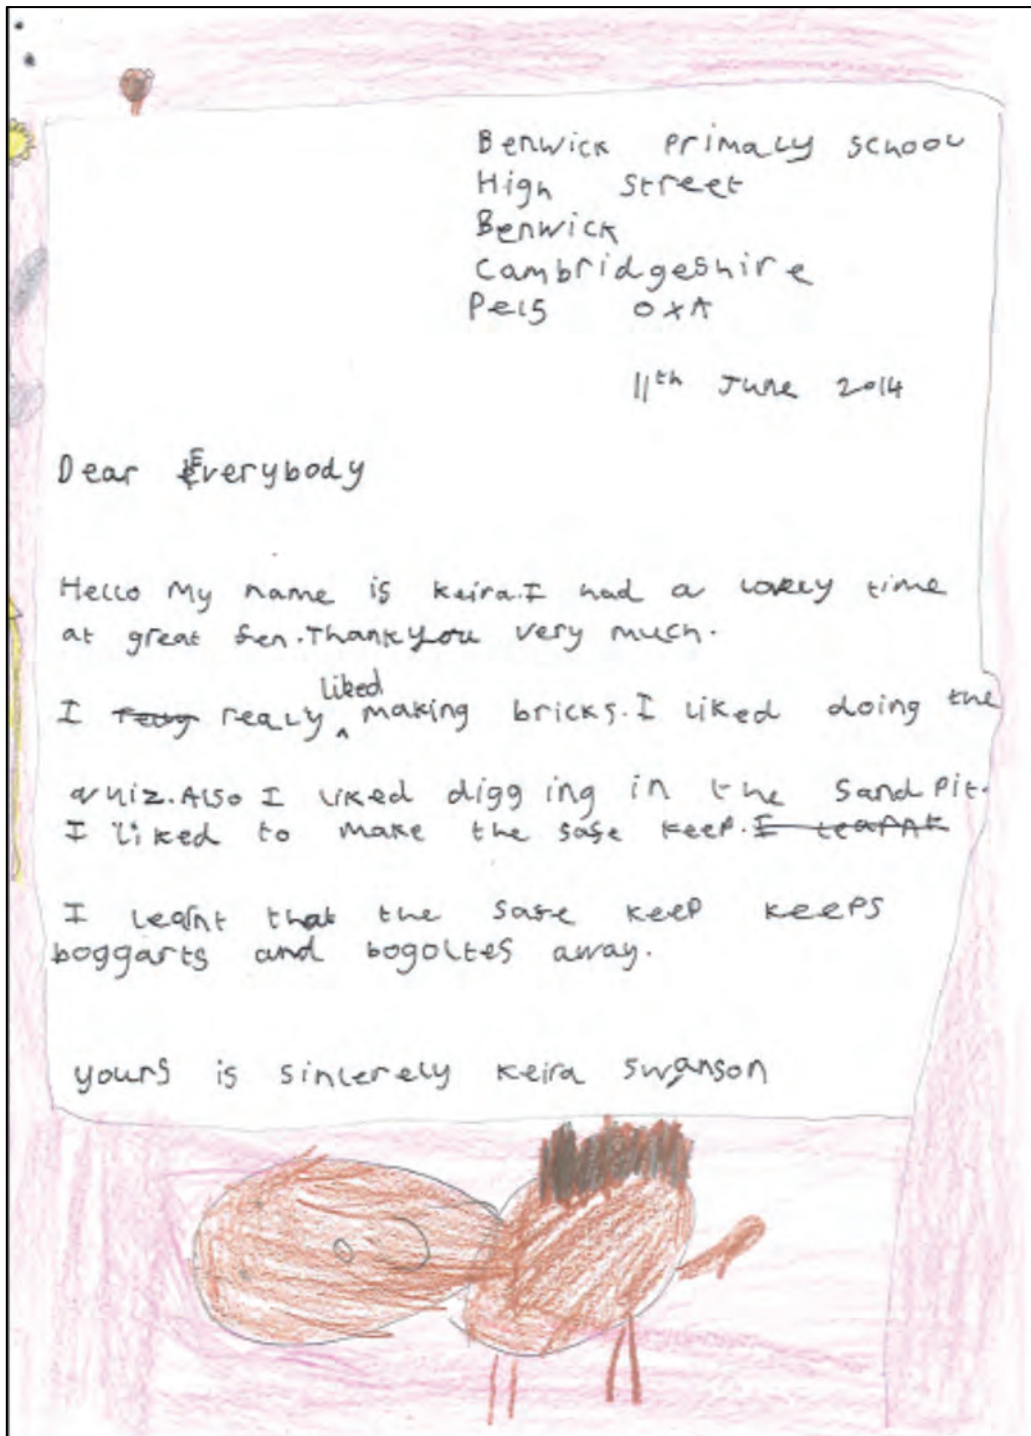 Benwick primary school
High street
Benwick
Cambridgeshire
Pe15 0XA
11th June 2014
Dear Everybody
Hello My name is keira.I had a lovely time
at great fen.Thankyou very much.
I realy liked making bricks.I liked doing the
quiz.Also I liked digging in the Sandpit.
I liked to make the safe keep.I learnt
I learnt that the safe keep keeps
boggarts and bogoltes away.
yours is sincerely keira swanson